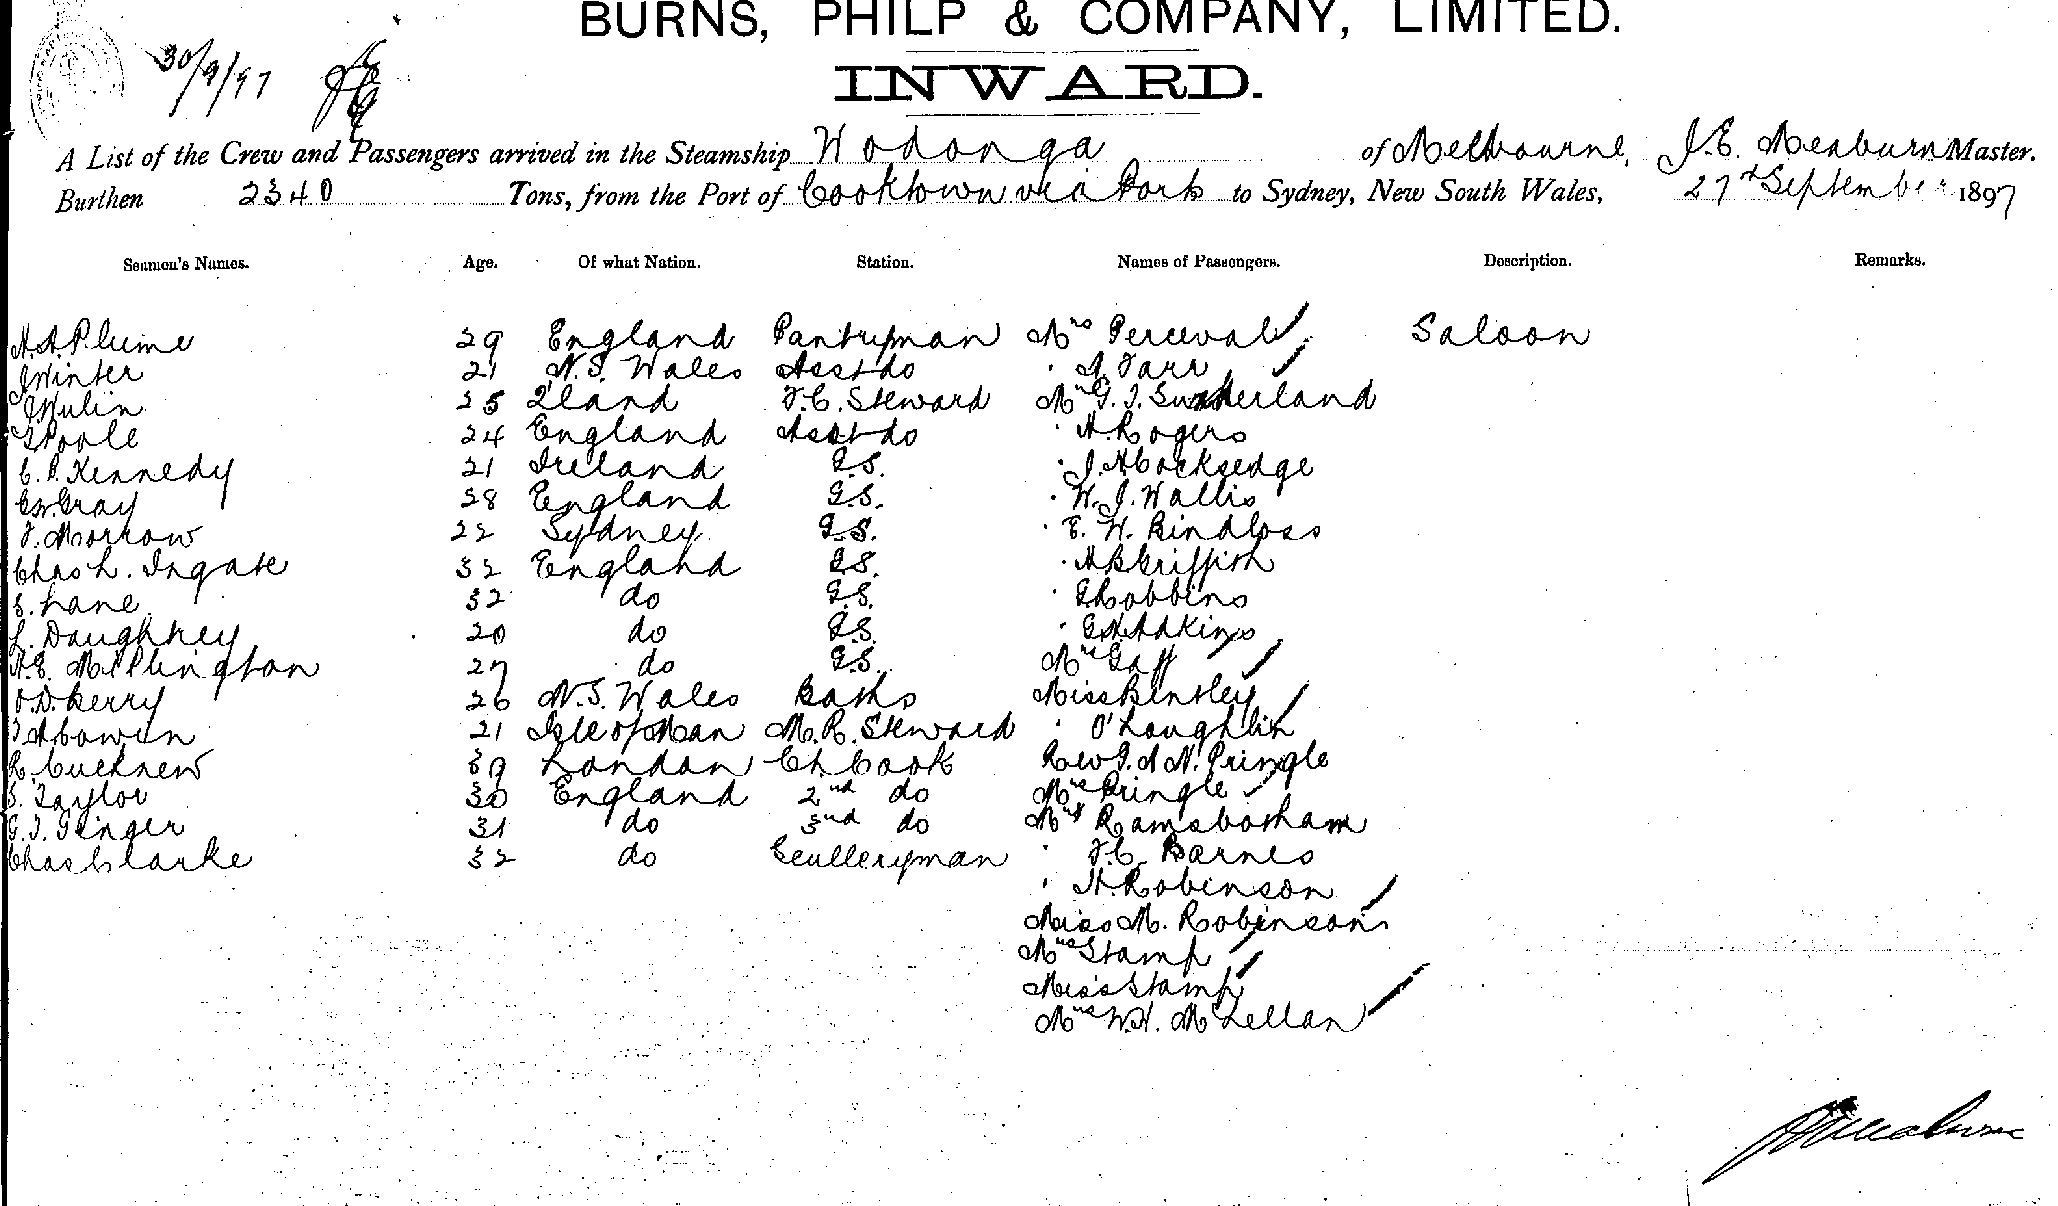 BURNS, PHILP & COMPANY, LIMITED.
30/9/97
INWARD.
A List of the Crew and Passengers arrived in the Steamship Wodonga of Melbourne, J.E. Meaburn Master.
Burthen 2340 Tons, from the Port of Cooktown via Ports to Sydney, New South Wales, 27th September 1897
Seamen's Names. Age. Of what Nation. Station. Names of Passengers. Description. Remarks.
H.A. Plume 29 England Pantryman Mrs Perceval Saloon
J Winter 21 N.S. Wales Asst do " A. Farr
25 Q'land F.C. Steward Mr G.F. Sutherland
T Poole 24 England Asst do " H. Rogers
C.P. Kennedy 21 Ireland G.S. " J.H. Cocksedge
Gray 28 England G.S. " W.J. Wallis
F. Morrow 22 Sydney G.S. " E.W. Bindloss
Chas L. Ingate 32 England G.S. " H B Griffith
S. Lane 32 do G.S. " G Robbins
L. Daughney 20 do G.S. " Adkins
A.E. Millington 27 do G.S. Mrs Gaff
O.D. Berry 26 N.S. Wales Baths Miss Bentley
Cowin 21 Isle of Man M.R. Steward " O'Loughlin
R. Cucknew 39 London Ch. Cook Rev F. A N. Pringle
S. Taylor 30 England 2nd do Mrs Pringle
G.T. Ginger 31 do 3rd do Mrs Ramsbotham
Chas Clarke 32 do Sculleryman " F.C. Barnes
" H. Robinson
Miss M. Robinson
Mrs Stamp
Miss Stamp
Mrs W.H. McLellan
J E Meaburn